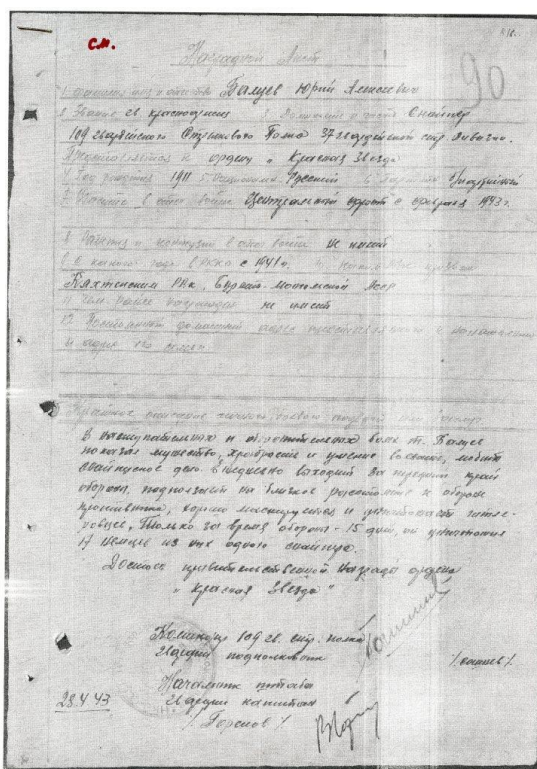 см.
90
Наградной Лист
1 фамилия имя и отчество Балуев Юрий Алексеевич
2 Звание гв. красноармеец 3 Должность и часть Снайпер
109 гвардейского Стрелкового Полка 37 гвардейской стр. дивизии.
Представляется к ордену „Красная Звезда
4 Год рождения 1911 5 национальн. Русский 6 партийн.
7 Участие в отеч. войне Центральный фронт с февраля 1943 г.
8 Ранения и контузии в отеч. войне не имеет
9 С какого года в РККА с 1941 г. призван
Кяхтинским РВК, Бурят-Монгольской АССР
11 Чем ранее награжден не имеет
12 Постоянный домашний адрес представляемого к награждению
и адрес его семьи
Краткое описание личного боевого подвига или заслуг
В наступательных и оборонительных боях т. Балуев
показал мужество, храбрость и умение воевать, любит
снайперское дело. Ежедневно выходит за передний край
обороны, подползает на близкое расстояние к обороне
противника, хорошо маскируется и уничтожает гитле-
ровцев, только за время обороны - 15 дней, он уничтожил
17 немцев из них одного снайпера.
Достоин правительственной награды ордена
„Красная Звезда"
Командир 109 гв. стр. полка
гвардии подполковник
Начальник штаба
гвардии капитан
28.4.43